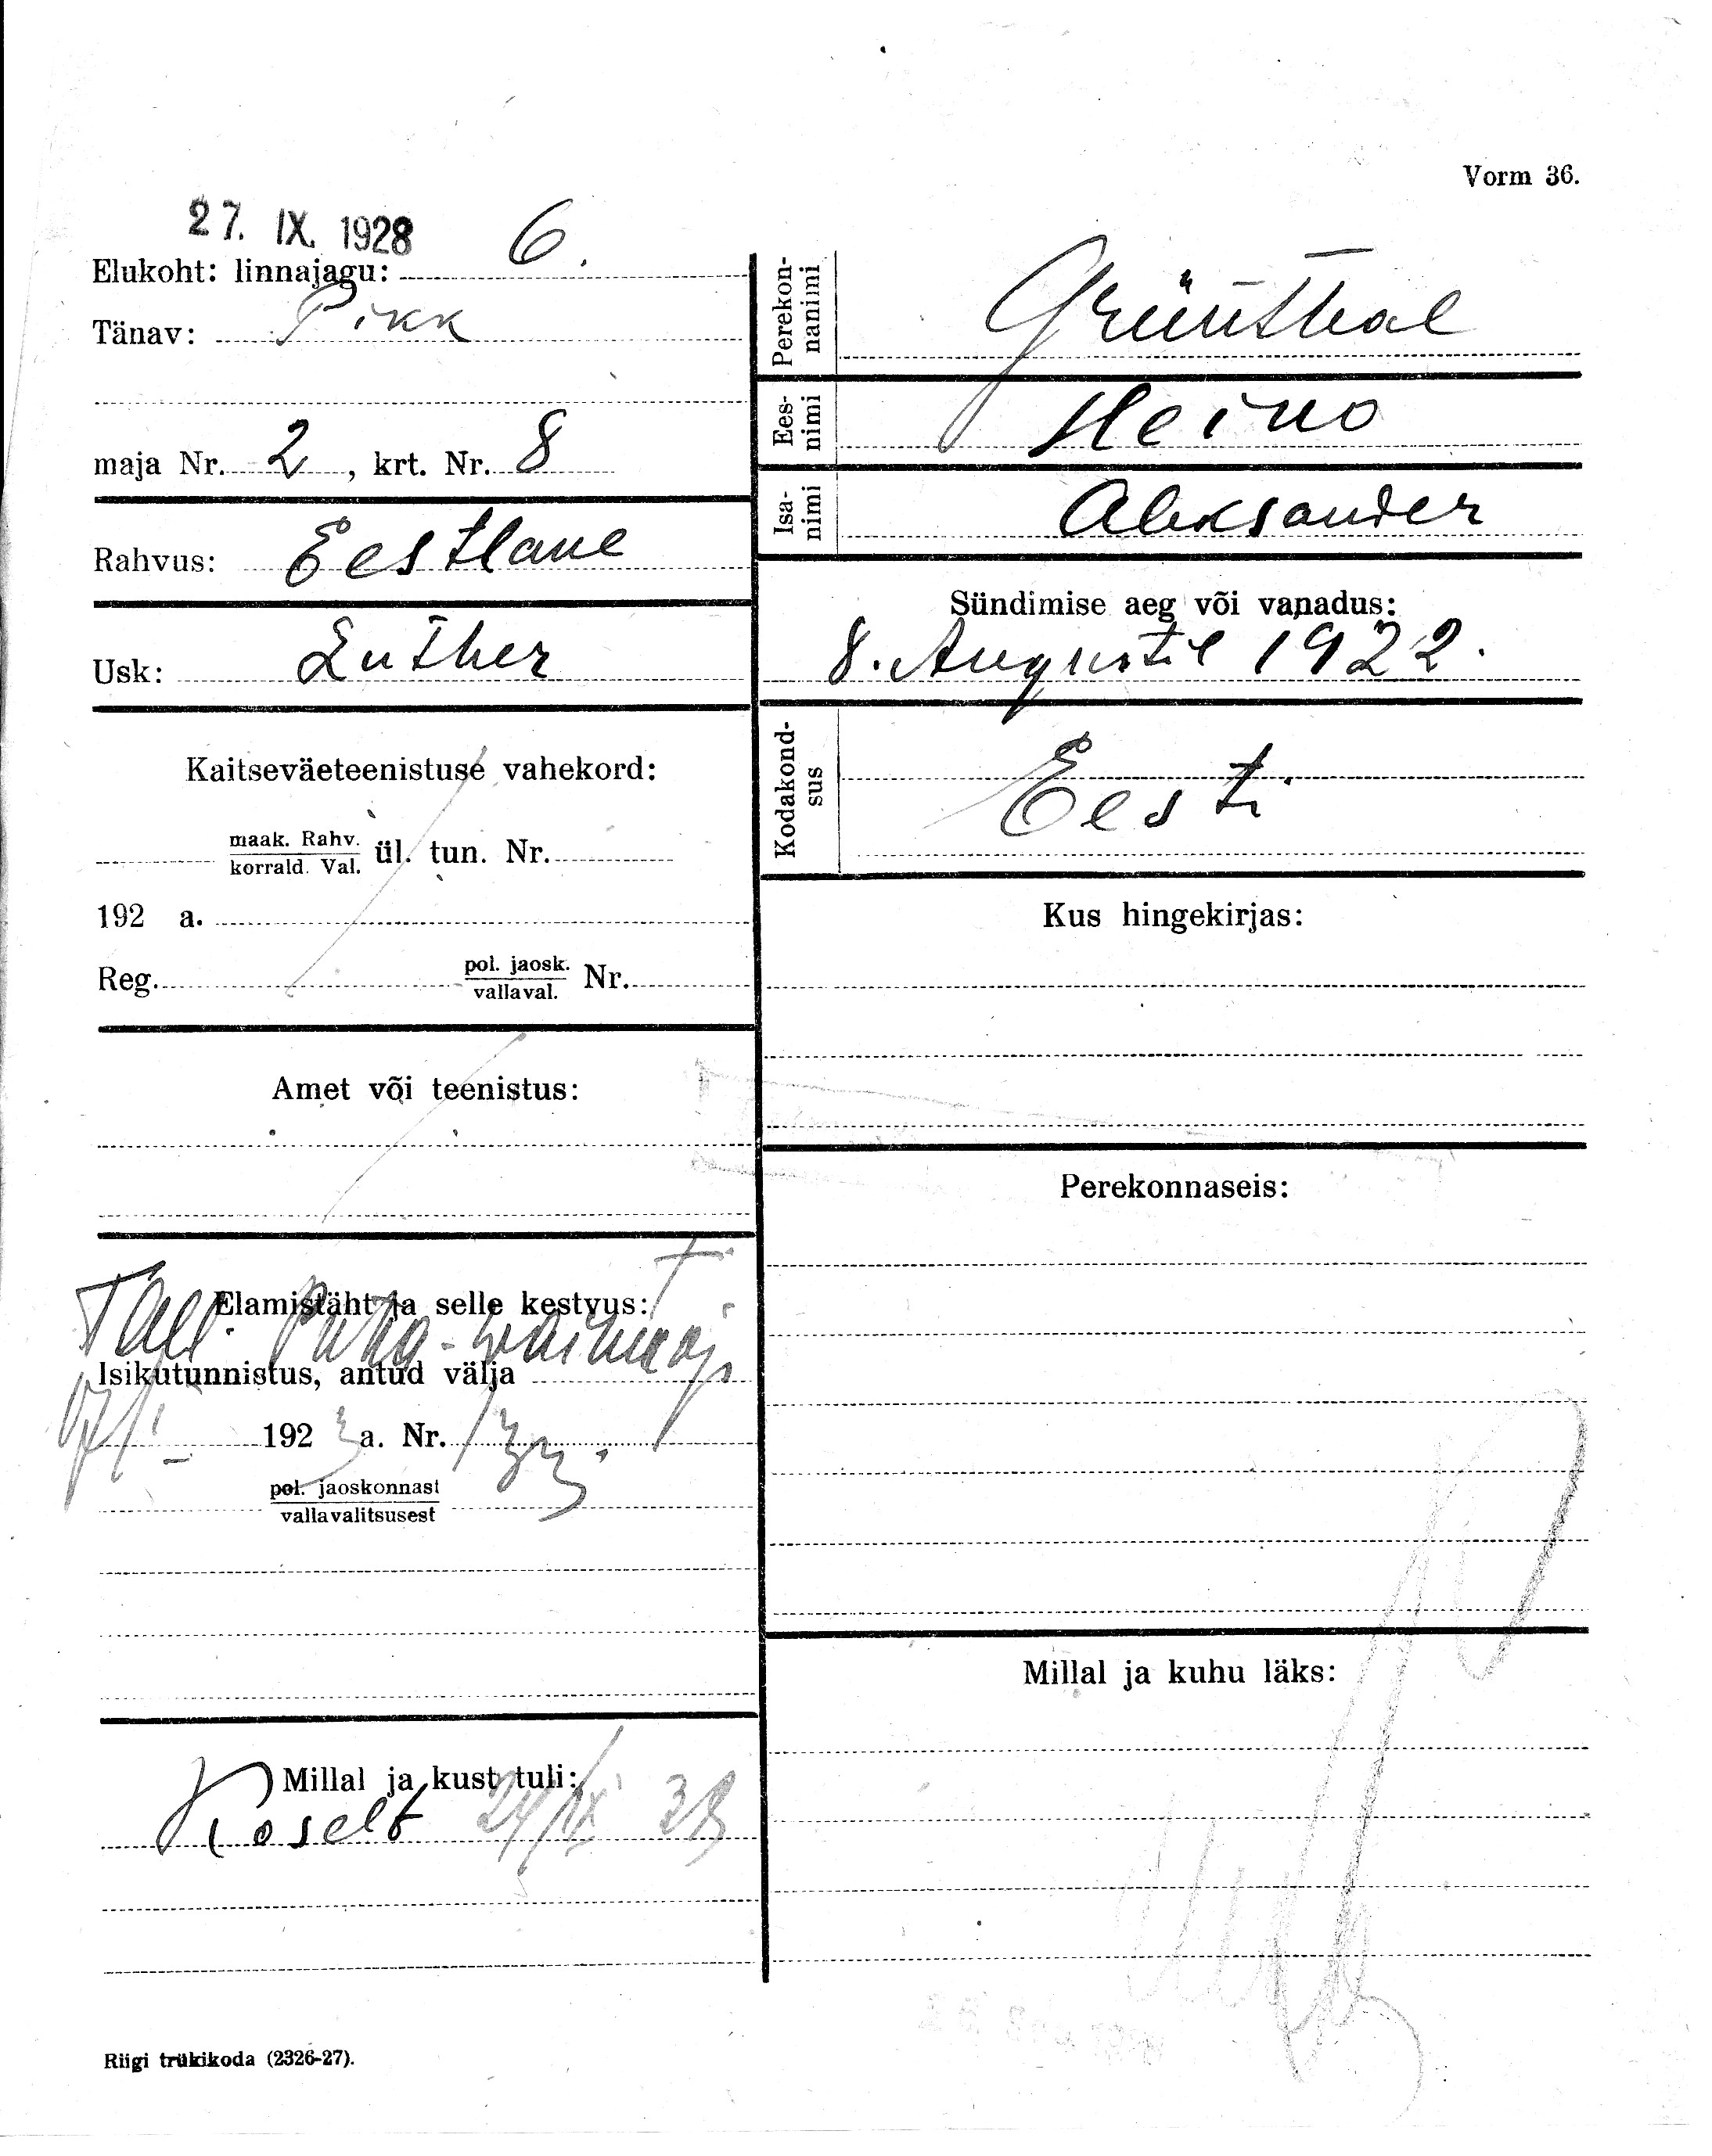 Vorm 36.
27. IX. 1928
Elukoht: linnajagu: 6.
Tänav: Pikk
maja Nr. 2, krt. Nr. 8
Rahvus: Eestlane
Usk: Luther
Kaitseväeteenistuse vahekord:
maak. Rahv.
korrald. Val. ül. tun. Nr.
192 a.
Reg. pol. jaosk. Nr.
vallaval.
Amet või teenistus:
Elamistäht ja selle kestvus:
Tall. Püha-
Isikutunnistus, antud välja
192 3 a. Nr. 133.
pol. jaoskonnast
vallavalitsusest
Millal ja kust tuli:
Koselt 24/IX 28
Riigi trükikoda (2326-27).
Perekon-
nanimi Grünthal
Ees-
nimi Heino
Isa-
nimi Aleksander
Sündimise aeg või vanadus:
8. Augustil 1922.
Kodakond-
sus Eesti
Kus hingekirjas:
Perekonnaseis:
Millal ja kuhu läks: